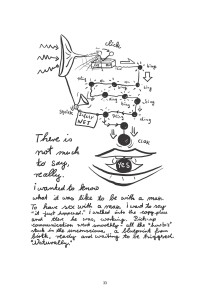 click
ding
ding
SILVER
NET
CLICK
Yes
There is
not much
to say,
really.
i wanted to know
what it was like to be with a man.
To have sex with a man. I used to say
"it just happened." I walked into the copy place
and there he was, working. Pick-up
communication went smoothly: all the
stuck in the unconscious, a blueprint from
birth, ready and waiting to be triggered.
"Naturally."
33